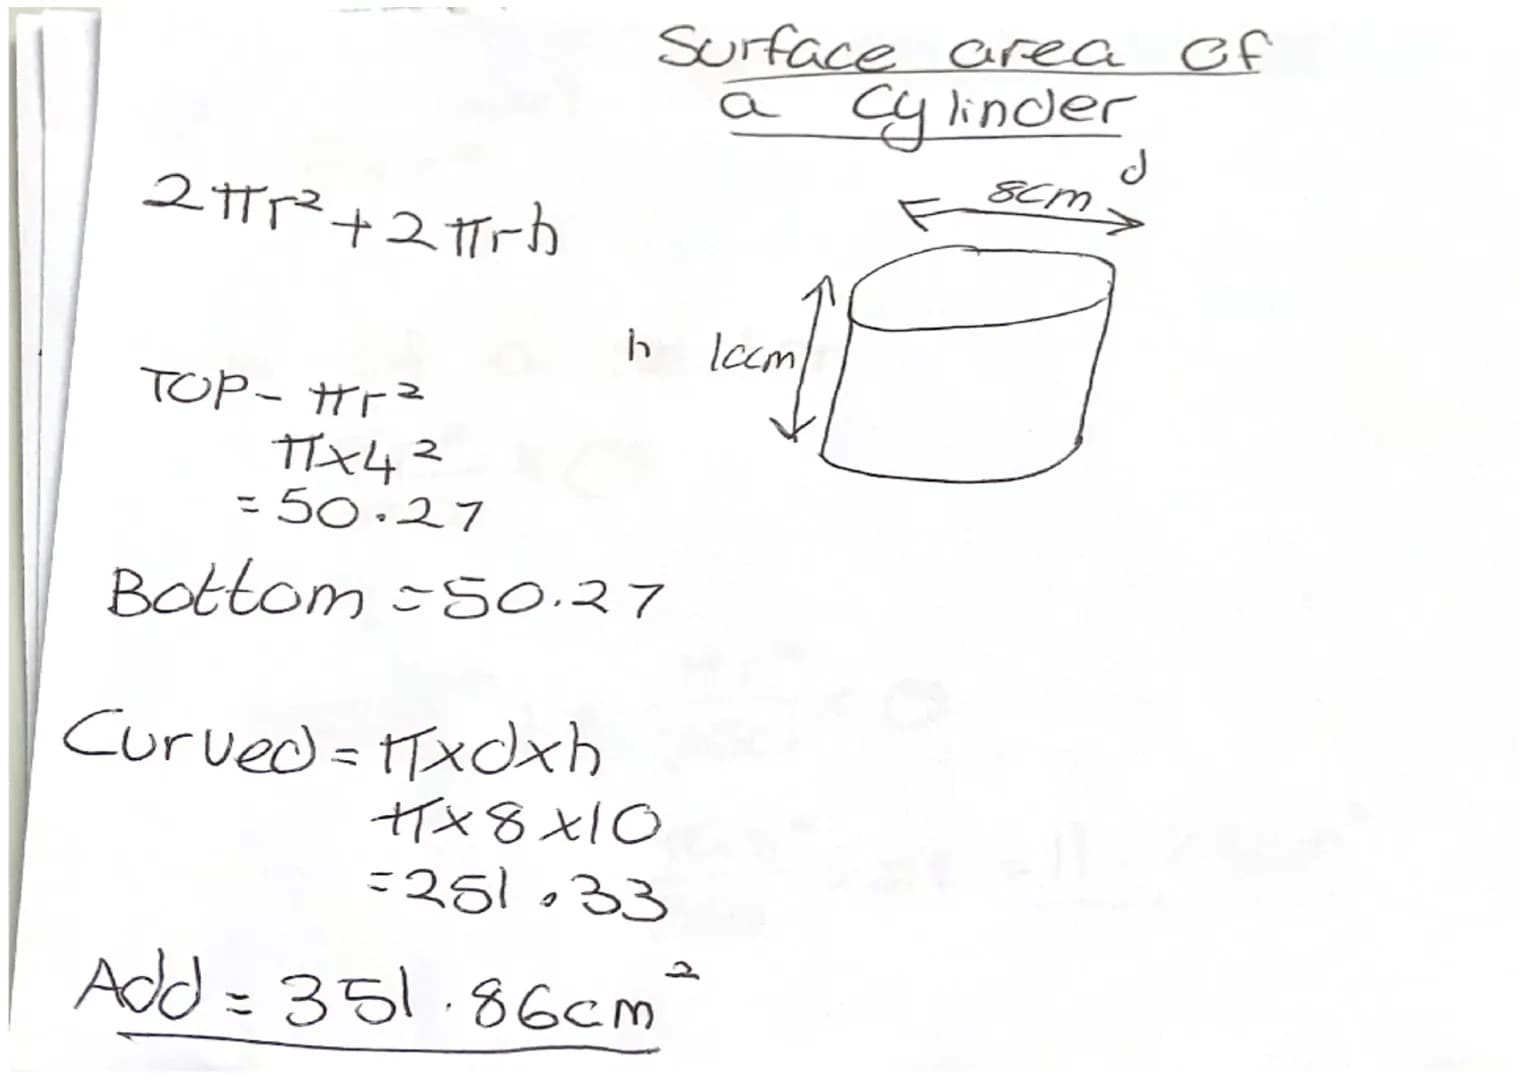 Surface area of
a Cylinder
d
8cm
2πr²+2πrh
h 10cm
TOP- πr²
πx4²
=50.27
Bottom =50.27
Curved=πxdxh
πx8x10
=251.33
Add=351.86cm²